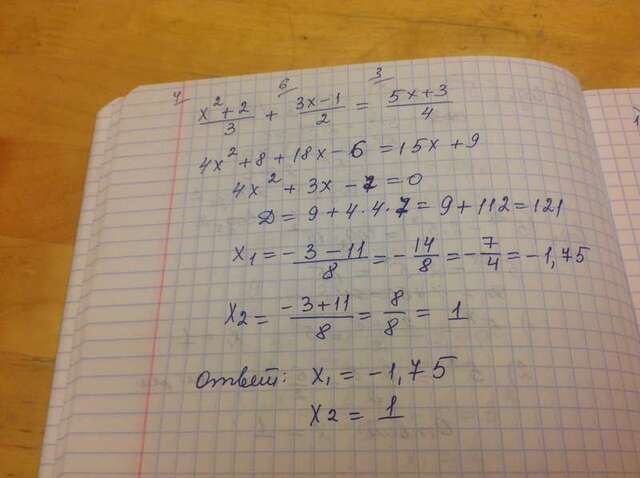 4/ 6/ 3/
x²+2/3 + 3x-1/2 = 5x+3/4
4x²+8+18x-6=15x+9
4x²+3x-7=0
D=9+4·4·7=9+112=121
x₁=-3-11/8=-14/8=-7/4=-1,75
x₂=-3+11/8=8/8=1
Ответ: x₁=-1,75
x₂=1